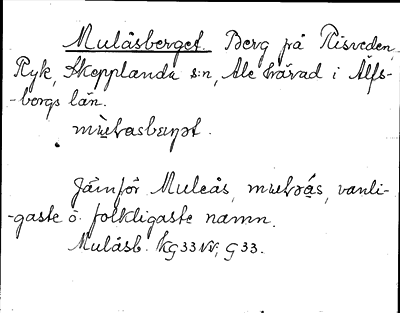 Mulåsberget. Berg på Risveden,
Ryk, Skepplanda s:n, Ale härad i Älfs-
-borgs län.
Jämför Muleås, vanli-
-gaste o. folkligaste namn.
Mulåsb. kG33NV; G33.